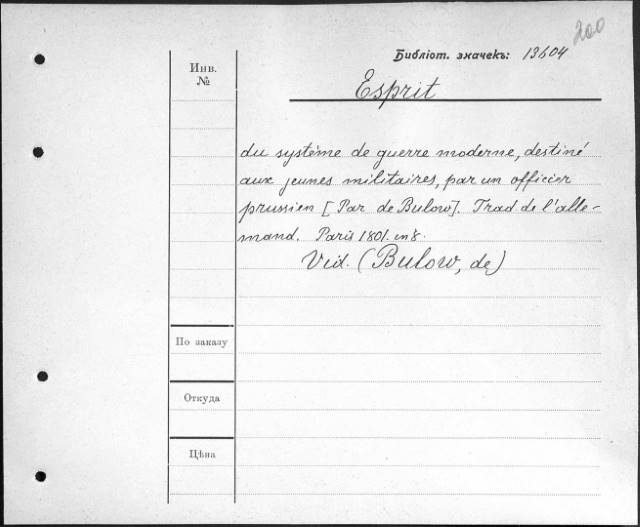 200
Библіот. значекъ: 13604
Инв.
№
Esprit
du système de guerre moderne, destiné
aux jeunes militaires, par un officier
prussien [Par de Bulow]. Trad de l'alle-
mand. Paris 1801. in 8.
Vid. (Bulow, de)
По заказу
Откуда
Цѣна